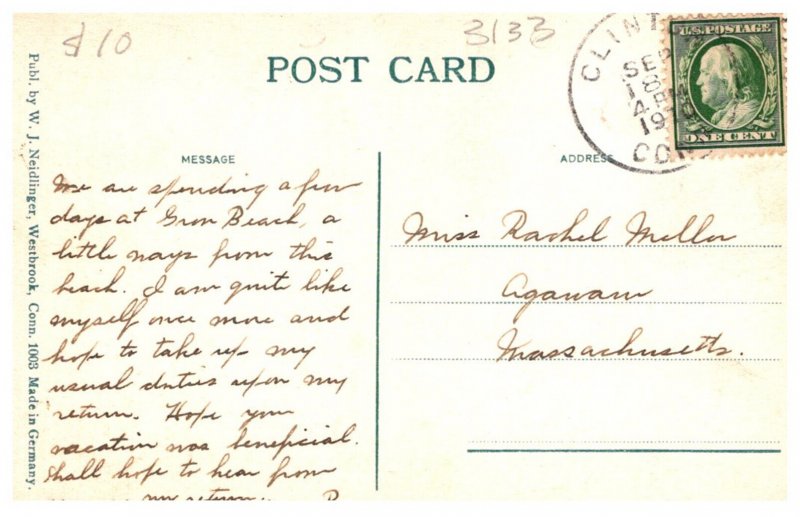 $10
3133
POST CARD
CLINT
SEP
18
4 PM
19
CONN
U.S. POSTAGE
ONE CENT
MESSAGE
ADDRESS
We are spending a few
days at Grove Beach, a
little ways from this
beach. I am quite like
myself once more and
hope to take up my
usual duties upon my
return. Hope your
vacation was beneficial.
Shall hope to hear from
my return.
Miss Rachel Mellor
Agawam
Massachusetts.
Publ. by W. J. Neidlinger, Westbrook, Conn. 1003 Made in Germany.